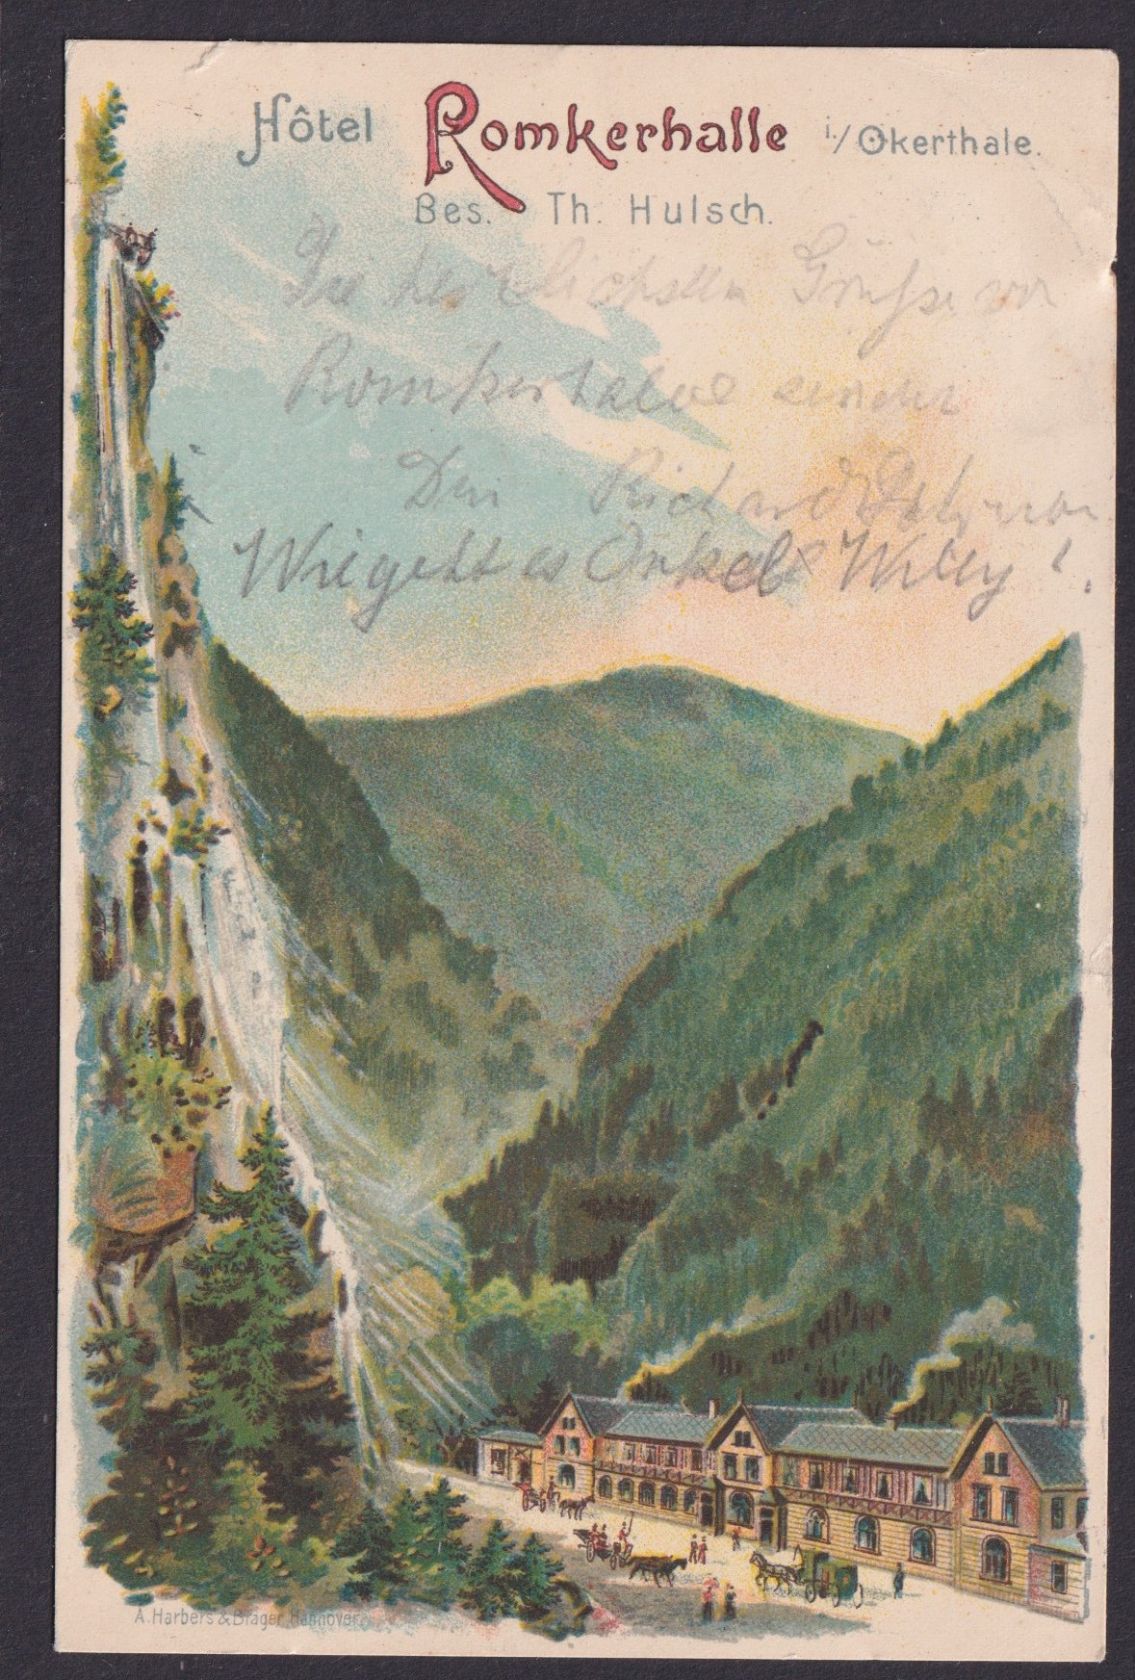 Hôtel Romkerhalle i./Okerthale.
Bes. Th. Hulsch.
Die herzlichsten Grüße von
Romkerhalle sendet
Dein Richard
Wie geht es Onkel Willy !
A. Harbers & Brager, Hannover.